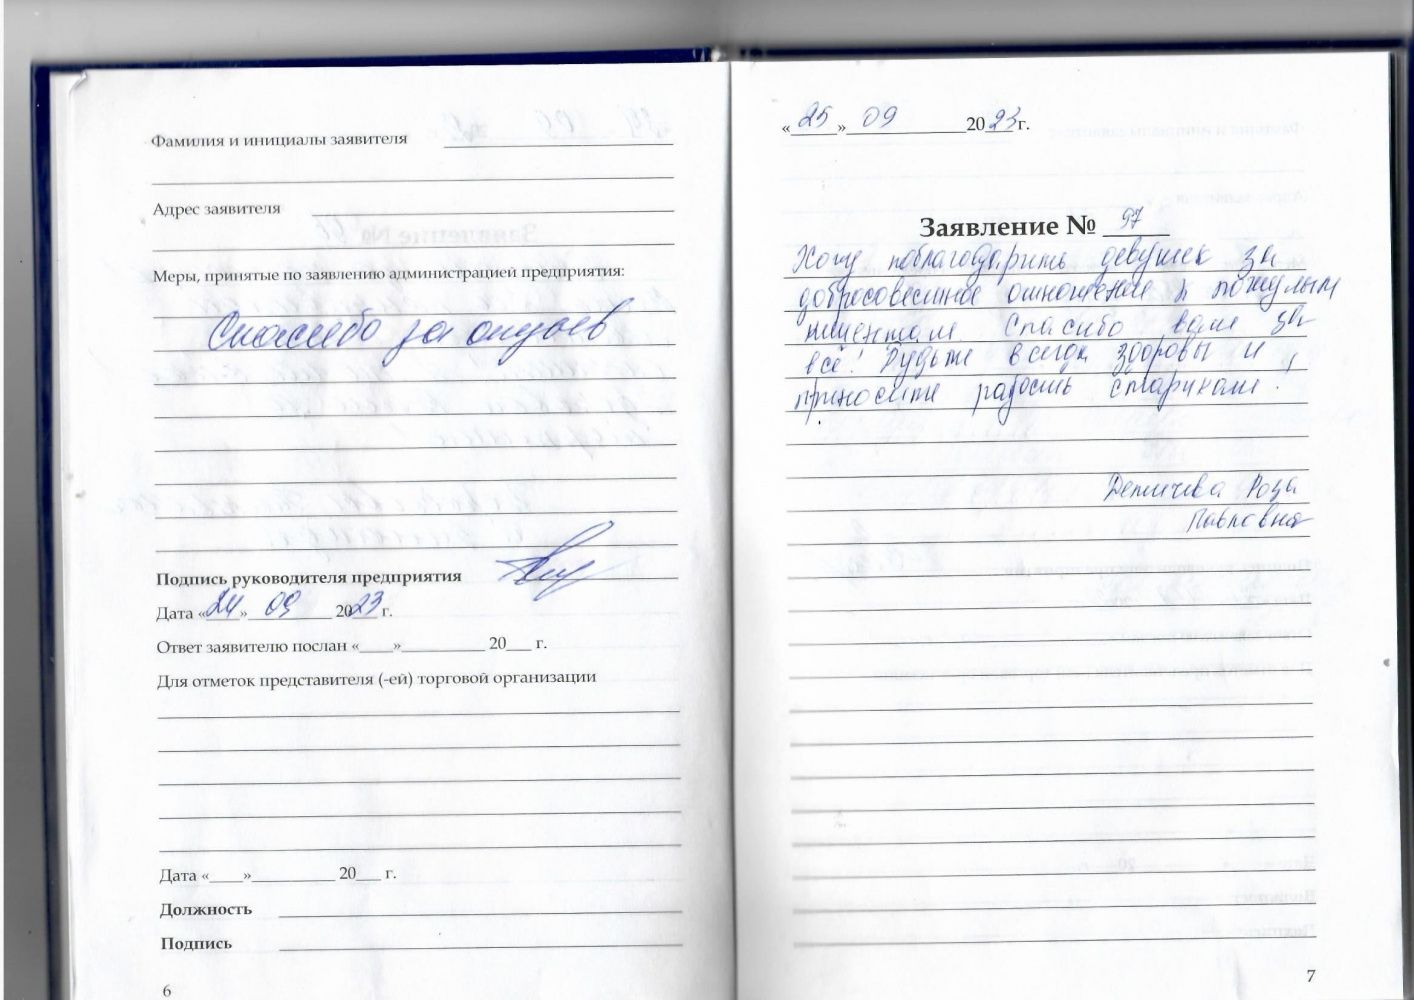 Фамилия и инициалы заявителя
Адрес заявителя
Меры, принятые по заявлению администрацией предприятия:
Спасибо за отзыв
Подпись руководителя предприятия
Дата «24» 09 2023 г.
Ответ заявителю послан «____»__________ 20___ г.
Для отметок представителя (-ей) торговой организации
Дата «____»__________ 20___ г.
Должность
Подпись
6
«25» 09 2023г.
Заявление № 97
Хочу поблагодарить девушек за
добросовестное отношение к пожилым
пациентам. Спасибо вам за
всё! Будьте всегда здоровы и
приносите радость старикам!
Роза
Павловна
7